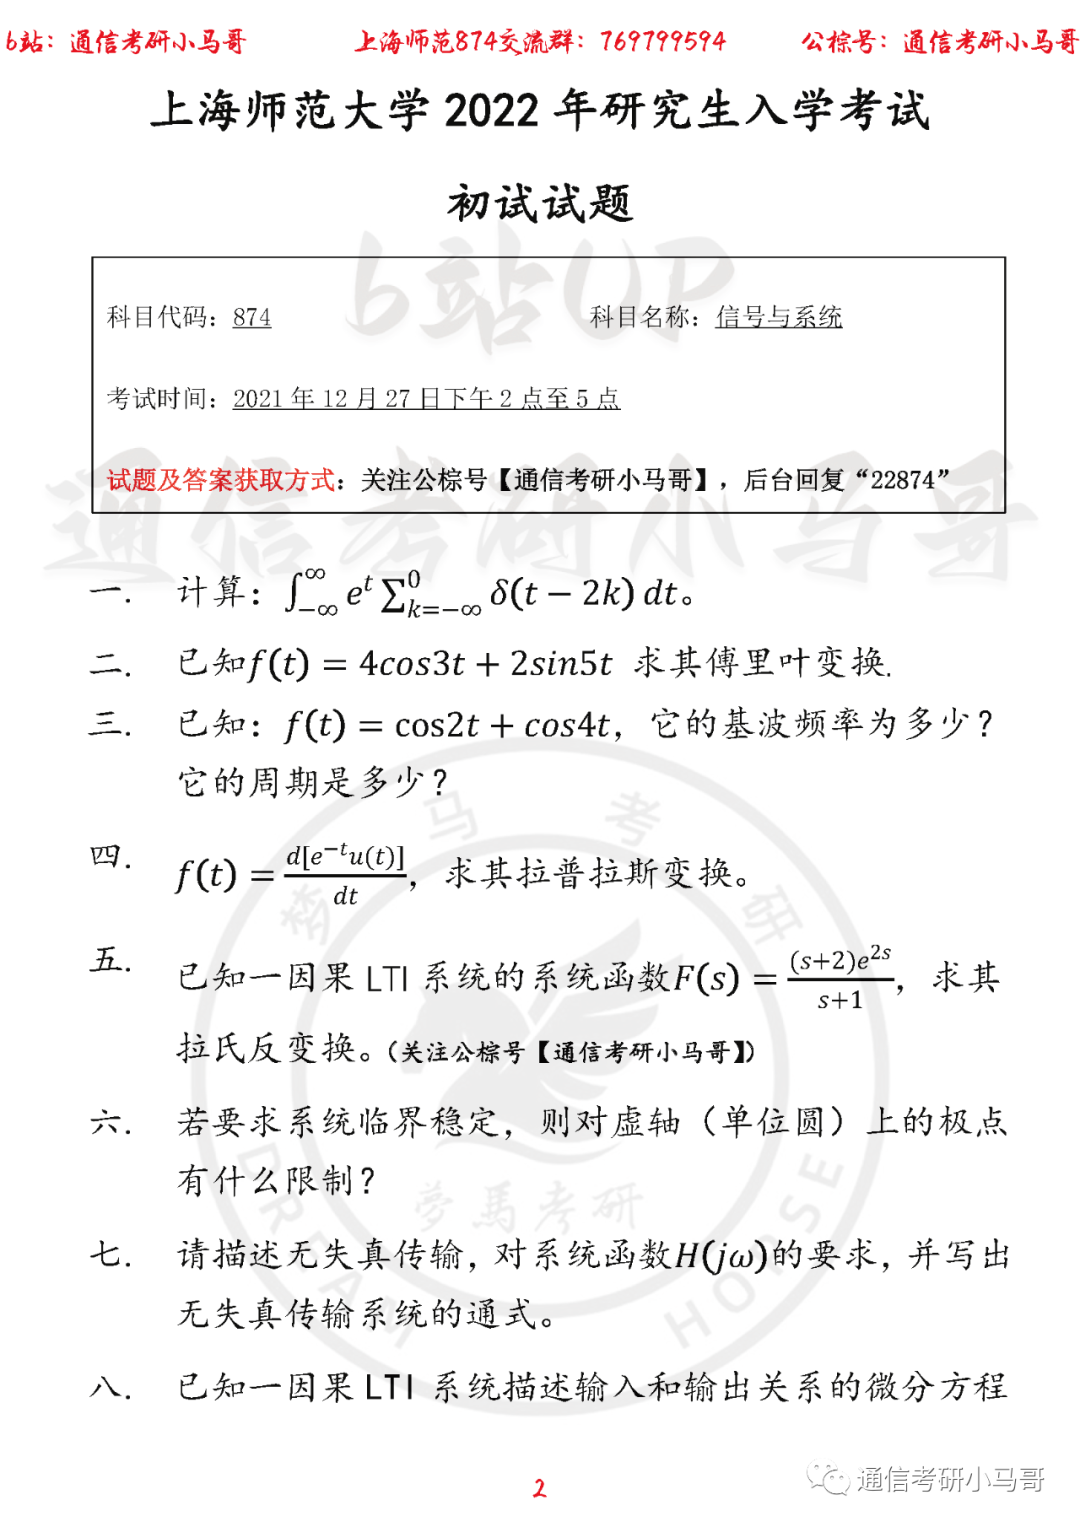 b站：通信考研小马哥 上海师范874交流群：769799594 公棕号：通信考研小马哥
上海师范大学 2022 年研究生入学考试
初试试题
科目代码：874 科目名称：信号与系统
考试时间：2021 年 12 月 27 日下午 2 点至 5 点
试题及答案获取方式：关注公棕号【通信考研小马哥】，后台回复“22874”
一. 计算：∫_{-∞}^{∞} e^t ∑_{k=-∞}^{0} δ(t − 2k) dt。
二. 已知f(t) = 4cos3t + 2sin5t 求其傅里叶变换.
三. 已知：f(t) = cos2t + cos4t，它的基波频率为多少？
它的周期是多少？
四. f(t) = d[e^{-t}u(t)]/dt，求其拉普拉斯变换。
五. 已知一因果 LTI 系统的系统函数F(s) = (s+2)e^{2s}/s+1，求其
拉氏反变换。（关注公棕号【通信考研小马哥】）
六. 若要求系统临界稳定，则对虚轴（单位圆）上的极点
有什么限制？
七. 请描述无失真传输，对系统函数H(jω)的要求，并写出
无失真传输系统的通式。
八. 已知一因果 LTI 系统描述输入和输出关系的微分方程
2
通信考研小马哥
b站UP
通信考研小马哥
梦马考研
夢馬考研
DREAM HORSE